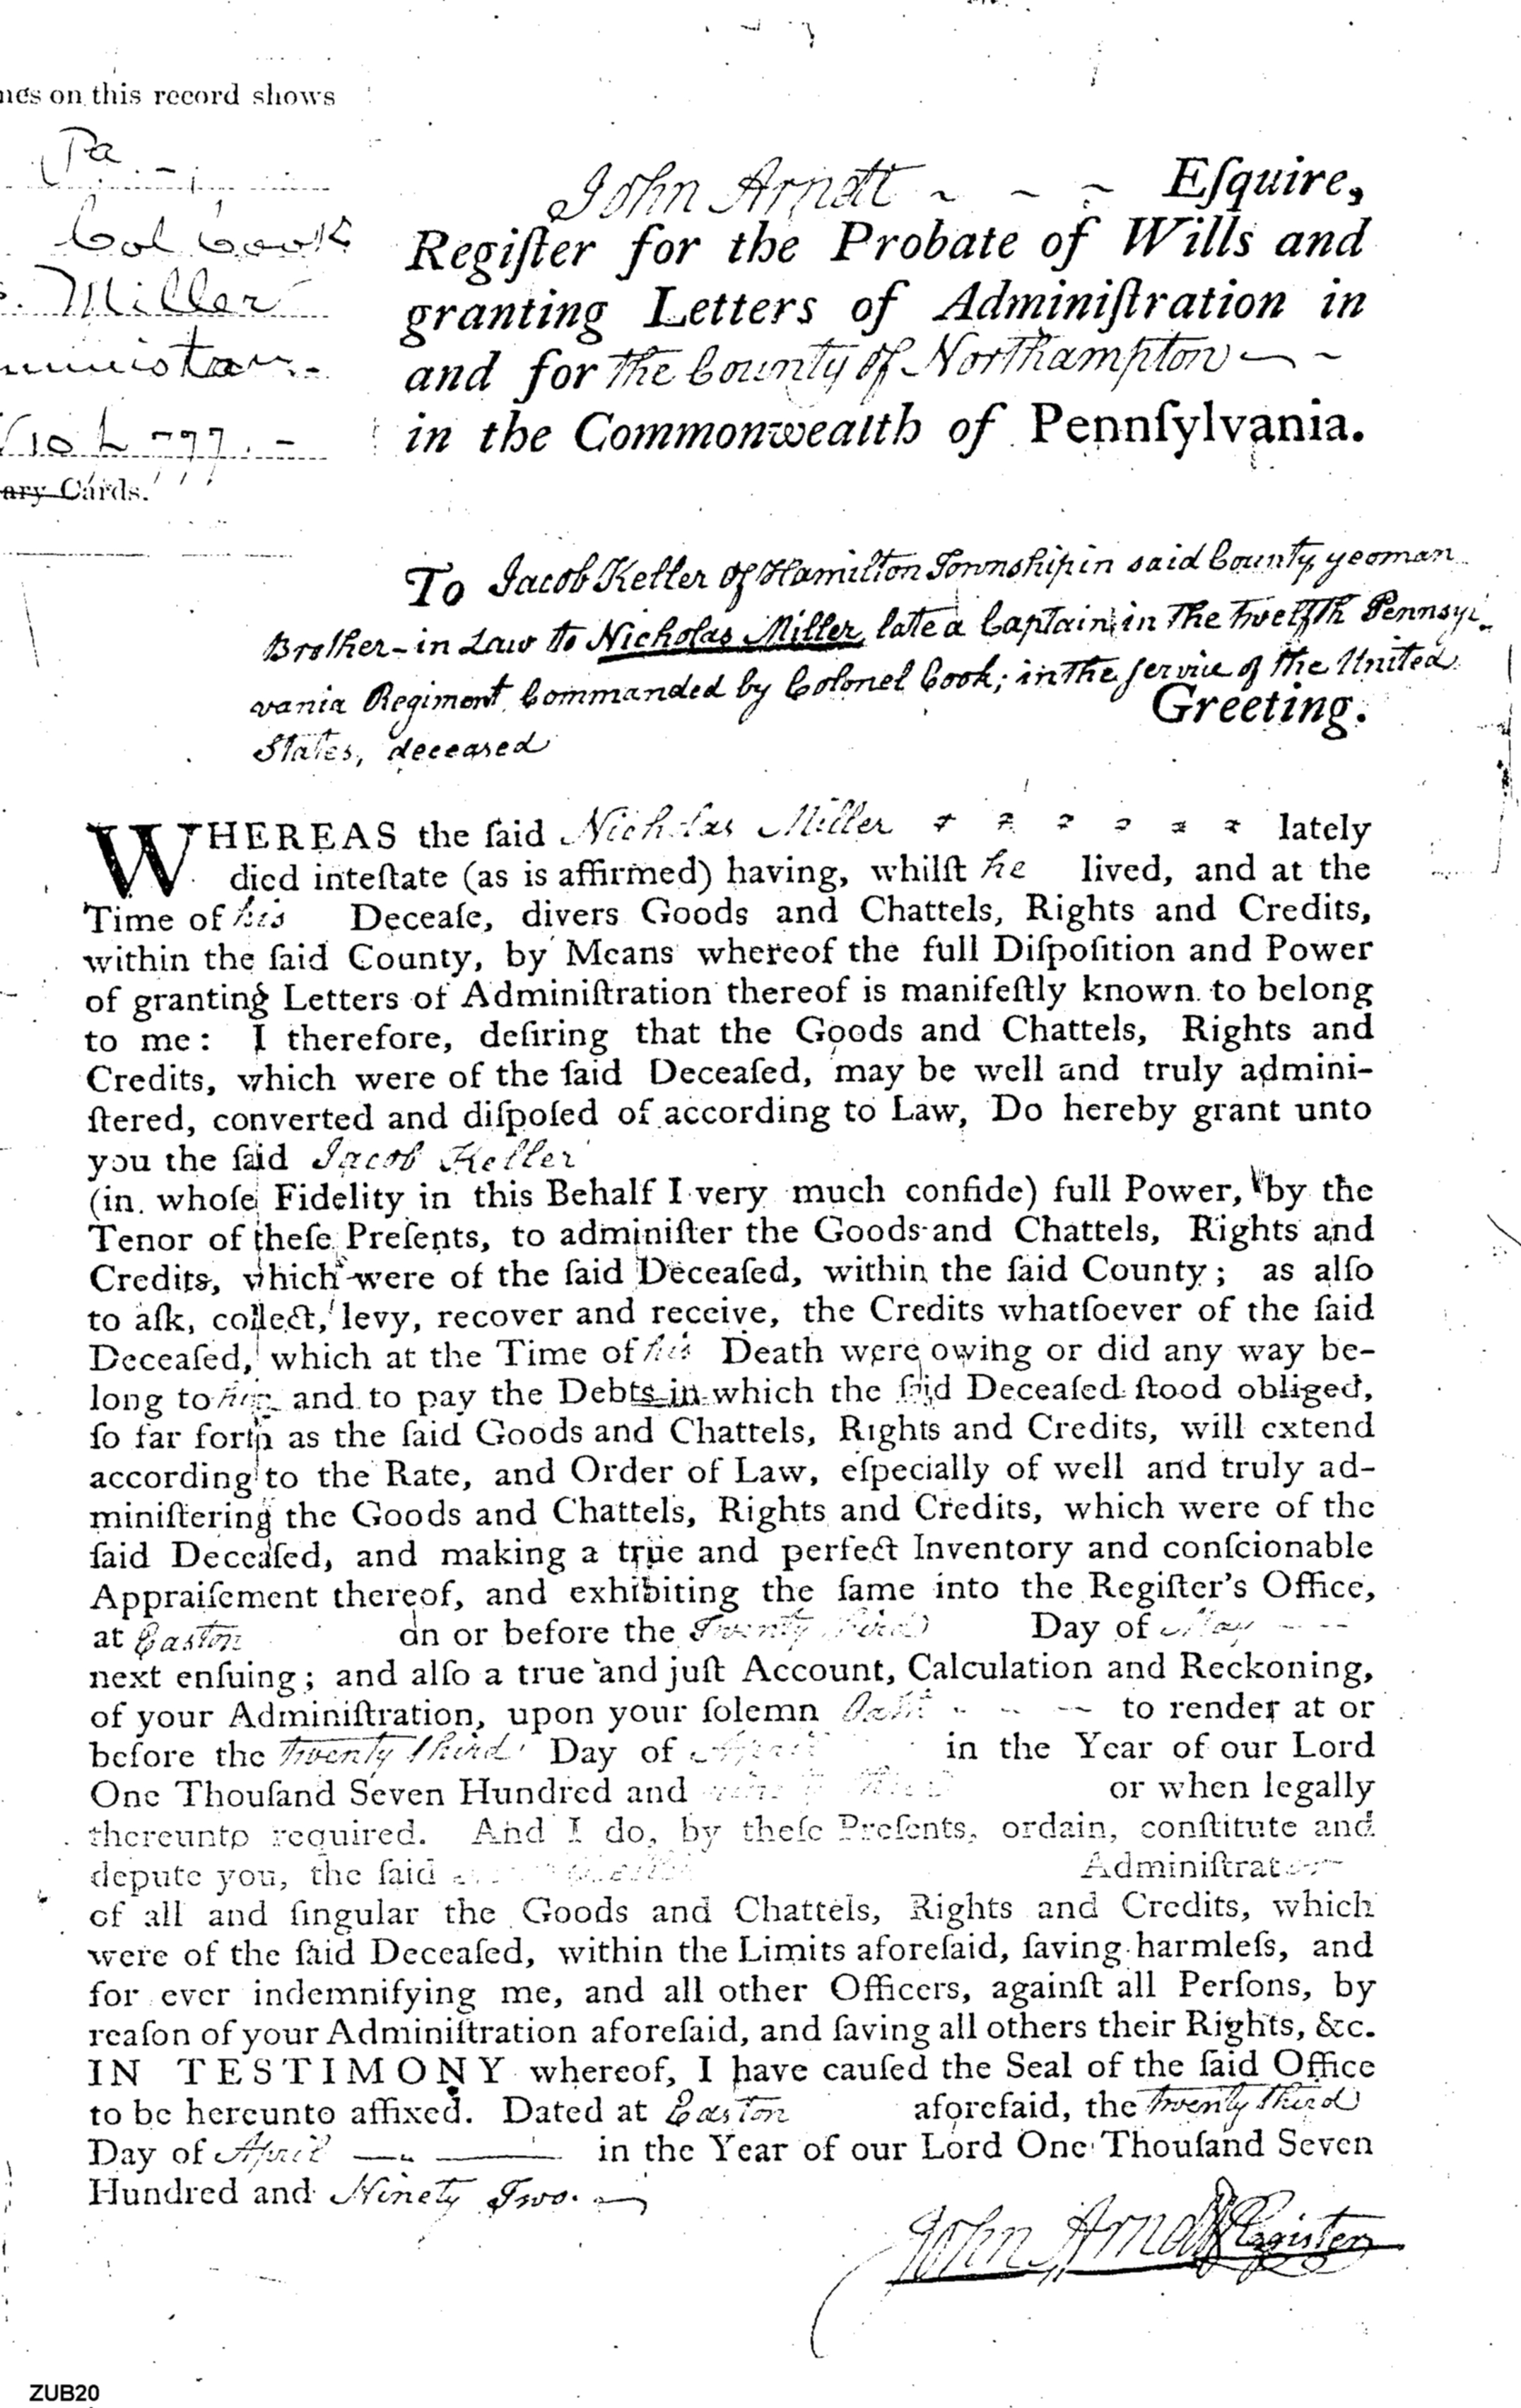 nes on this record shows
Pa
Col Cook
Miller
10 L 797
ary Cards.
John Arndt Eſquire,
Regiſter for the Probate of Wills and
granting Letters of Adminiſtration in
and for the County of Northampton
in the Commonwealth of Pennſylvania.
To Jacob Keller of Hamilton Township in said County yeoman
Brother-in Law to Nicholas Miller, late a Captain in the Twelfth Pennsyl-
vania Regiment Commanded by Colonel Cook; in the service of the United
Greeting.
States, deceased
WHEREAS the ſaid Nicholas Miller lately
died inteſtate (as is affirmed) having, whilſt he lived, and at the
Time of his Deceaſe, divers Goods and Chattels, Rights and Credits,
within the ſaid County, by Means whereof the full Diſpoſition and Power
of granting Letters of Adminiſtration thereof is manifeſtly known to belong
to me: I therefore, deſiring that the Goods and Chattels, Rights and
Credits, which were of the ſaid Deceaſed, may be well and truly admini-
ſtered, converted and diſpoſed of according to Law, Do hereby grant unto
you the ſaid Jacob Keller
(in whoſe Fidelity in this Behalf I very much confide) full Power, by the
Tenor of theſe Preſents, to adminiſter the Goods and Chattels, Rights and
Credits, which were of the ſaid Deceaſed, within the ſaid County; as alſo
to aſk, collect, levy, recover and receive, the Credits whatſoever of the ſaid
Deceaſed, which at the Time of his Death were owing or did any way be-
long to him and to pay the Debts in which the ſaid Deceaſed ſtood obliged,
ſo far forth as the ſaid Goods and Chattels, Rights and Credits, will extend
according to the Rate, and Order of Law, eſpecially of well and truly ad-
miniſtering the Goods and Chattels, Rights and Credits, which were of the
ſaid Deceaſed, and making a true and perfect Inventory and conſcionable
Appraiſement thereof, and exhibiting the ſame into the Regiſter's Office,
at Easton on or before the Twenty third Day of May
next enſuing; and alſo a true and juſt Account, Calculation and Reckoning,
of your Adminiſtration, upon your ſolemn Oath to render at or
before the Twenty third Day of April in the Year of our Lord
One Thouſand Seven Hundred and or when legally
thereunto required. And I do, by theſe Preſents, ordain, conſtitute and
depute you, the ſaid Adminiſtrator
of all and ſingular the Goods and Chattels, Rights and Credits, which
were of the ſaid Deceaſed, within the Limits aforeſaid, ſaving harmleſs, and
for ever indemnifying me, and all other Officers, againſt all Perſons, by
reaſon of your Adminiſtration aforeſaid, and ſaving all others their Rights, &c.
IN TESTIMONY whereof, I have cauſed the Seal of the ſaid Office
to be hereunto affixed. Dated at Easton aforeſaid, the Twenty third
Day of April in the Year of our Lord One Thouſand Seven
Hundred and Ninety Two.
John Arndt Register
ZUB20